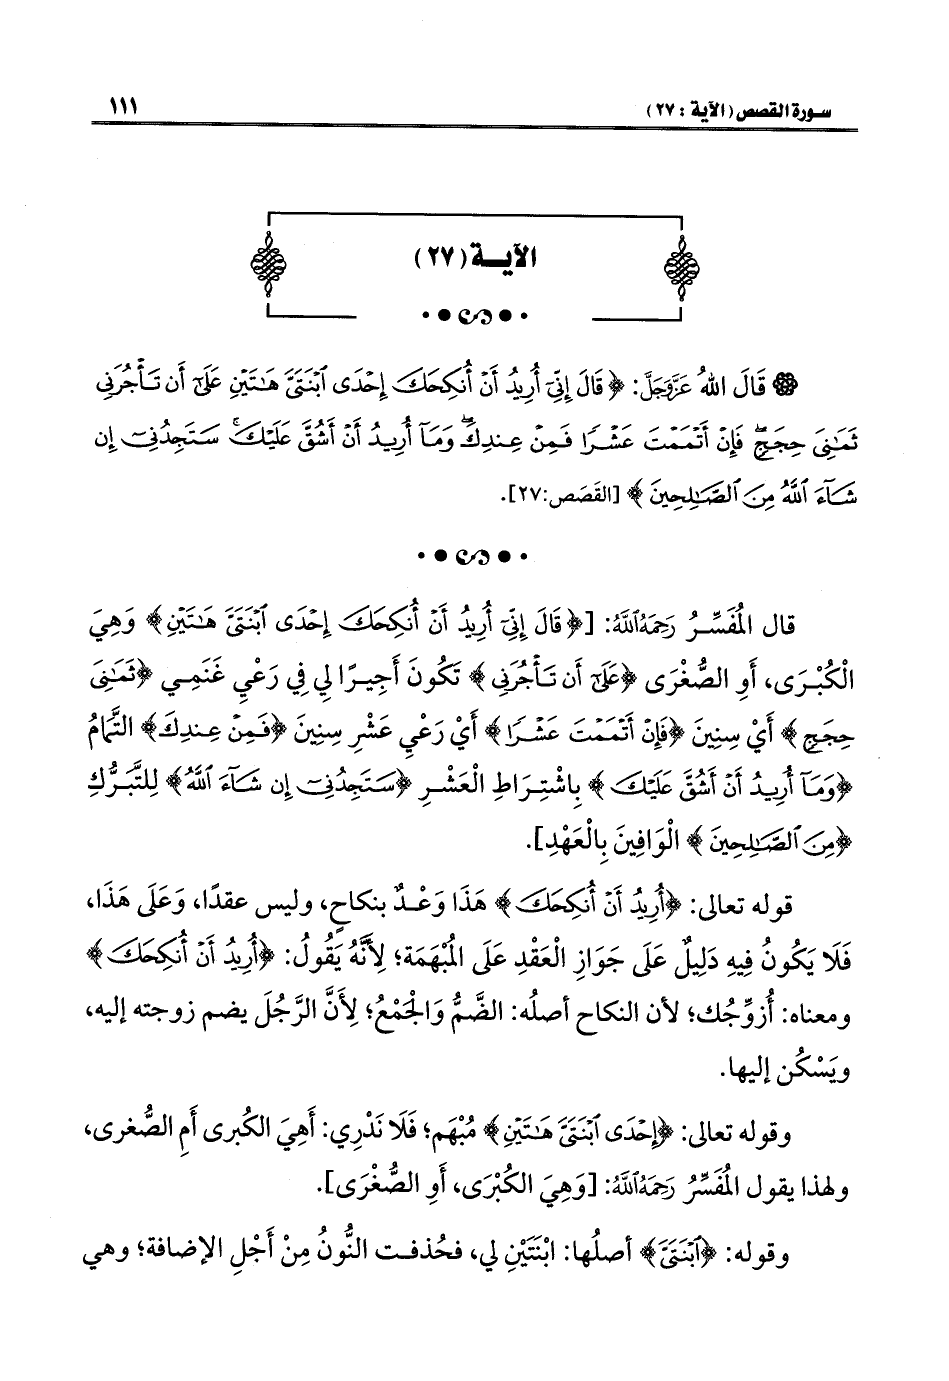 سورة القصص (الآية : ٢٧)
١١١
الآيـــة (٢٧)
قَالَ اللهُ عَزَّوَجَلَّ: ﴿قَالَ إِنِّيٓ أُرِيدُ أَنۡ أُنكِحَكَ إِحۡدَى ٱبۡنَتَيَّ هَٰتَيۡنِ عَلَىٰٓ أَن تَأۡجُرَنِي
ثَمَٰنِيَ حِجَجٖۖ فَإِنۡ أَتۡمَمۡتَ عَشۡرٗا فَمِنۡ عِندِكَۖ وَمَآ أُرِيدُ أَنۡ أَشُقَّ عَلَيۡكَۚ سَتَجِدُنِيٓ إِن
شَآءَ ٱللَّهُ مِنَ ٱلصَّٰلِحِينَ﴾ [القَصَص:٢٧].
قال المُفَسِّـرُ رَحِمَهُ اللَّهُ: [﴿قَالَ إِنِّيٓ أُرِيدُ أَنۡ أُنكِحَكَ إِحۡدَى ٱبۡنَتَيَّ هَٰتَيۡنِ﴾ وَهِيَ
الْكُبْرَى، أَوِ الصُّغْرَى ﴿عَلَىٰٓ أَن تَأۡجُرَنِي﴾ تَكُونَ أَجِيرًا لِي فِي رَعْيِ غَنَمِي ﴿ثَمَٰنِيَ
حِجَجٖ﴾ أَيْ سِنِينَ ﴿فَإِنۡ أَتۡمَمۡتَ عَشۡرٗا﴾ أَيْ رَعْيِ عَشْرِ سِنِينَ ﴿فَمِنۡ عِندِكَ﴾ التَّمَامُ
﴿وَمَآ أُرِيدُ أَنۡ أَشُقَّ عَلَيۡكَ﴾ بِاشْتِرَاطِ الْعَشْرِ ﴿سَتَجِدُنِيٓ إِن شَآءَ ٱللَّهُ﴾ لِلتَّبَرُّكِ
﴿مِنَ ٱلصَّٰلِحِينَ﴾ الْوَافِينَ بِالْعَهْدِ].
قوله تعالى: ﴿أُرِيدُ أَنۡ أُنكِحَكَ﴾ هَذَا وَعْـدٌ بنكاحٍ، وليس عقدًا، وَعَلَى هَذَا،
فَلَا يَكُونُ فِيهِ دَلِيلٌ عَلَى جَوَازِ الْعَقْدِ عَلَى المُبْهَمَةِ؛ لِأَنَّهُ يَقُولُ: ﴿أُرِيدُ أَنۡ أُنكِحَكَ﴾
ومعناه: أُزوِّجُك؛ لأن النكاح أصلُه: الضَّمُّ وَالجَمْعُ؛ لِأَنَّ الرَّجُلَ يضم زوجته إليه،
ويَسْكُن إليها.
وقوله تعالى: ﴿إِحۡدَى ٱبۡنَتَيَّ هَٰتَيۡنِ﴾ مُبْهَم؛ فَلَا نَدْرِي: أَهِيَ الكبرى أمِ الصُّغرى،
ولهذا يقول المُفَسِّرُ رَحِمَهُ اللَّهُ: [وَهِيَ الكُبْرَى، أَوِ الصُّغْرَى].
وقوله: ﴿ٱبۡنَتَيَّ﴾ أصلُها: ابْنَتَيْنِ لي، فحُذفت النُّونُ مِنْ أَجْلِ الإضافة؛ وهي